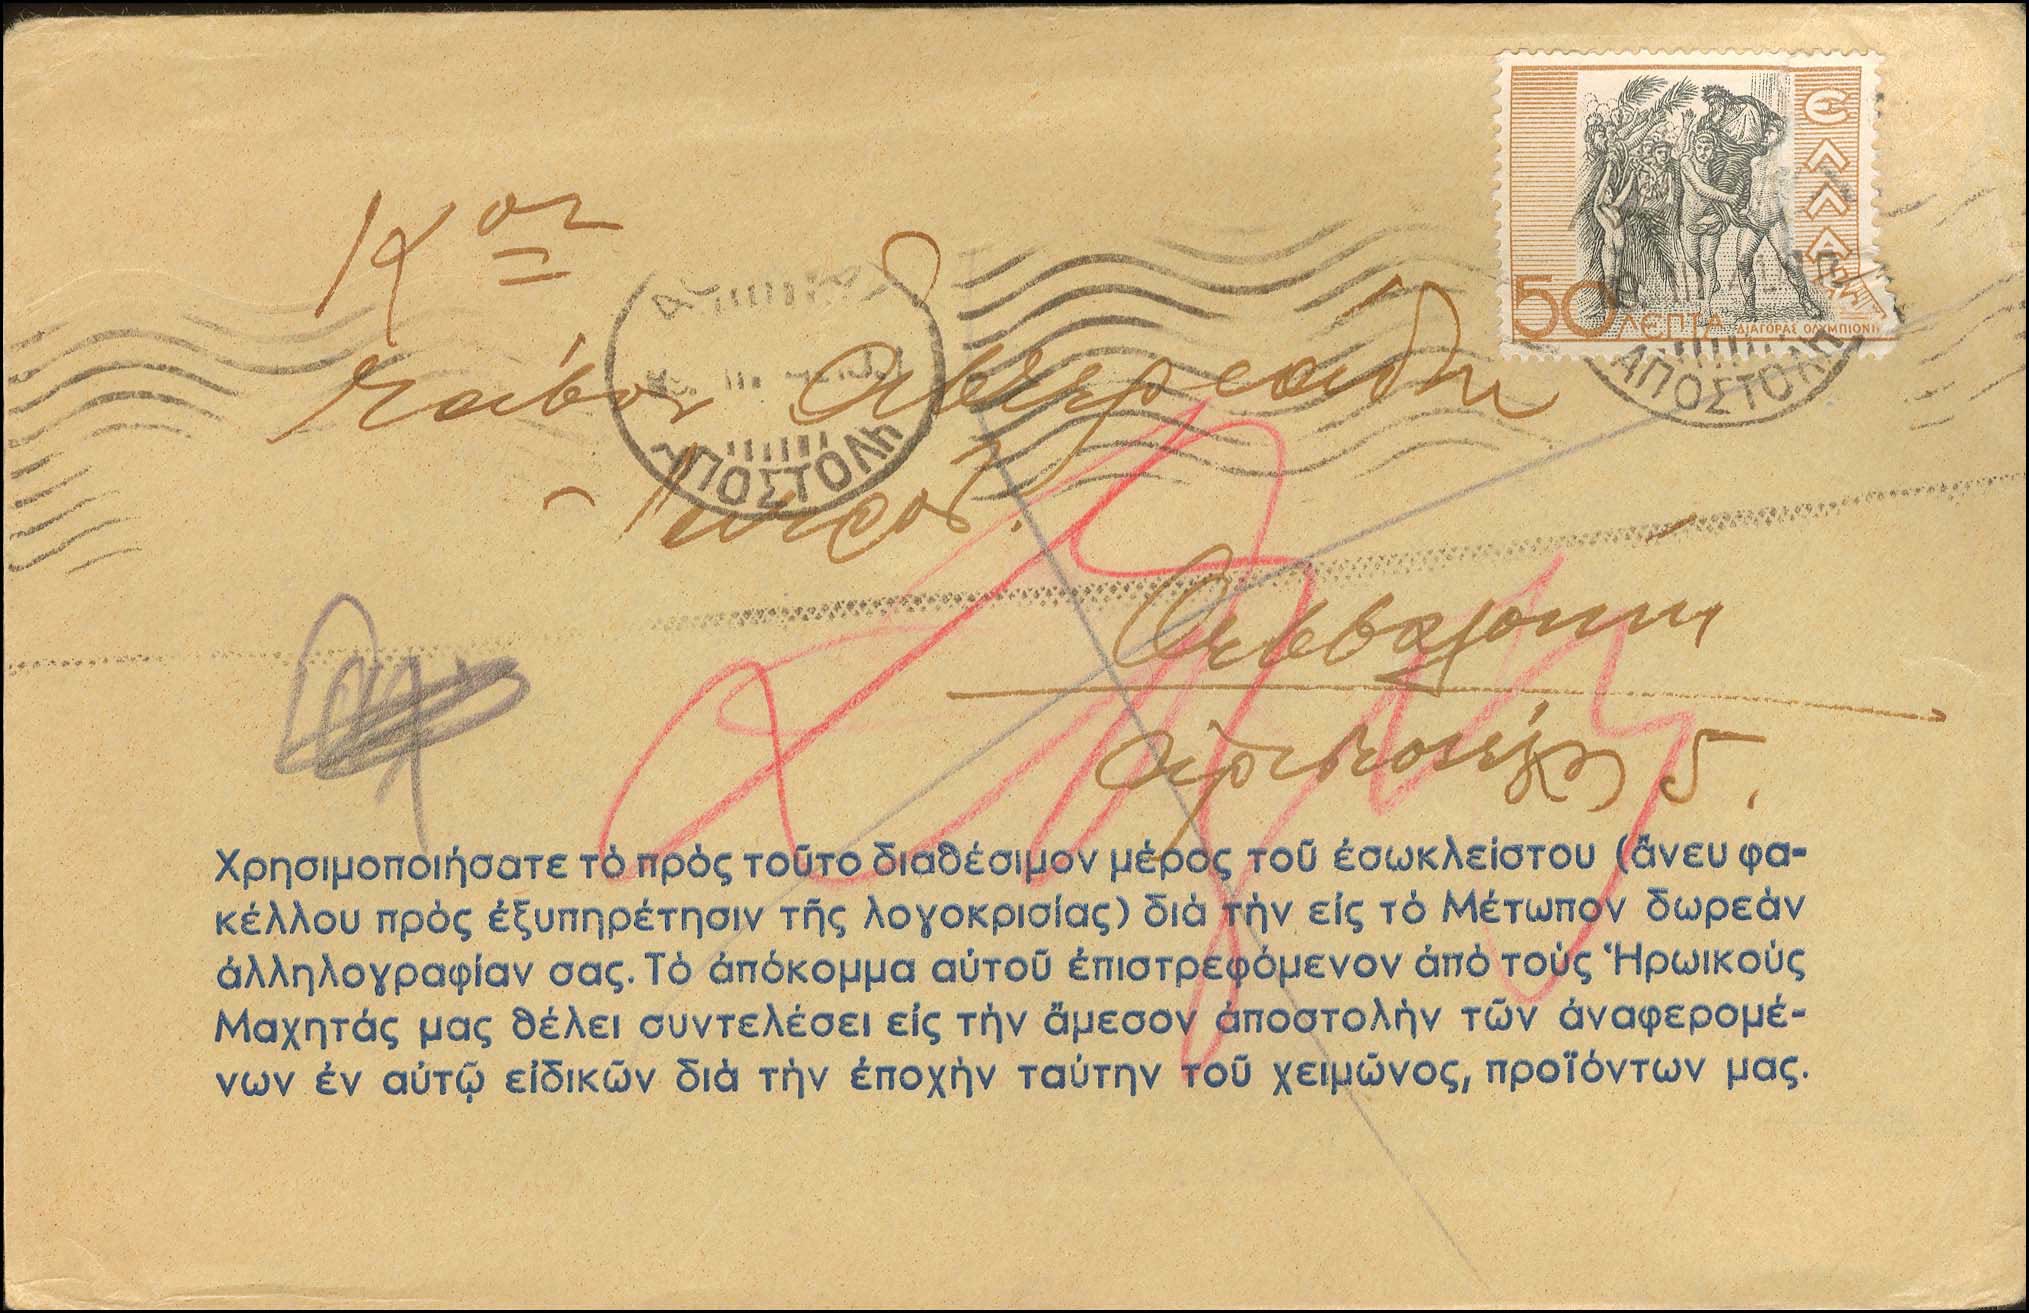 ΕΛΛΑΣ
50 ΛΕΠΤΑ
ΔΙΑΓΟΡΑΣ ΟΛΥΜΠΙΟΝΙ
Κον
ΑΠΟΣΤΟΛΗ
ΑΠΟΣΤΟΛΗ
Ιατρον
Θεσσαλονίκη
5.
Χρησιμοποιήσατε τὸ πρὸς τοῦτο διαθέσιμον μέρος τοῦ ἐσωκλείστου (ἄνευ φα-
κέλλου πρὸς ἐξυπηρέτησιν τῆς λογοκρισίας) διὰ τὴν εἰς τὸ Μέτωπον δωρεὰν
ἀλληλογραφίαν σας. Τὸ ἀπόκομμα αὐτοῦ ἐπιστρεφόμενον ἀπὸ τοὺς Ἡρωικοὺς
Μαχητάς μας θέλει συντελέσει εἰς τὴν ἄμεσον ἀποστολὴν τῶν ἀναφερομέ-
νων ἐν αὐτῷ εἰδικῶν διὰ τὴν ἐποχὴν ταύτην τοῦ χειμῶνος, προϊόντων μας.